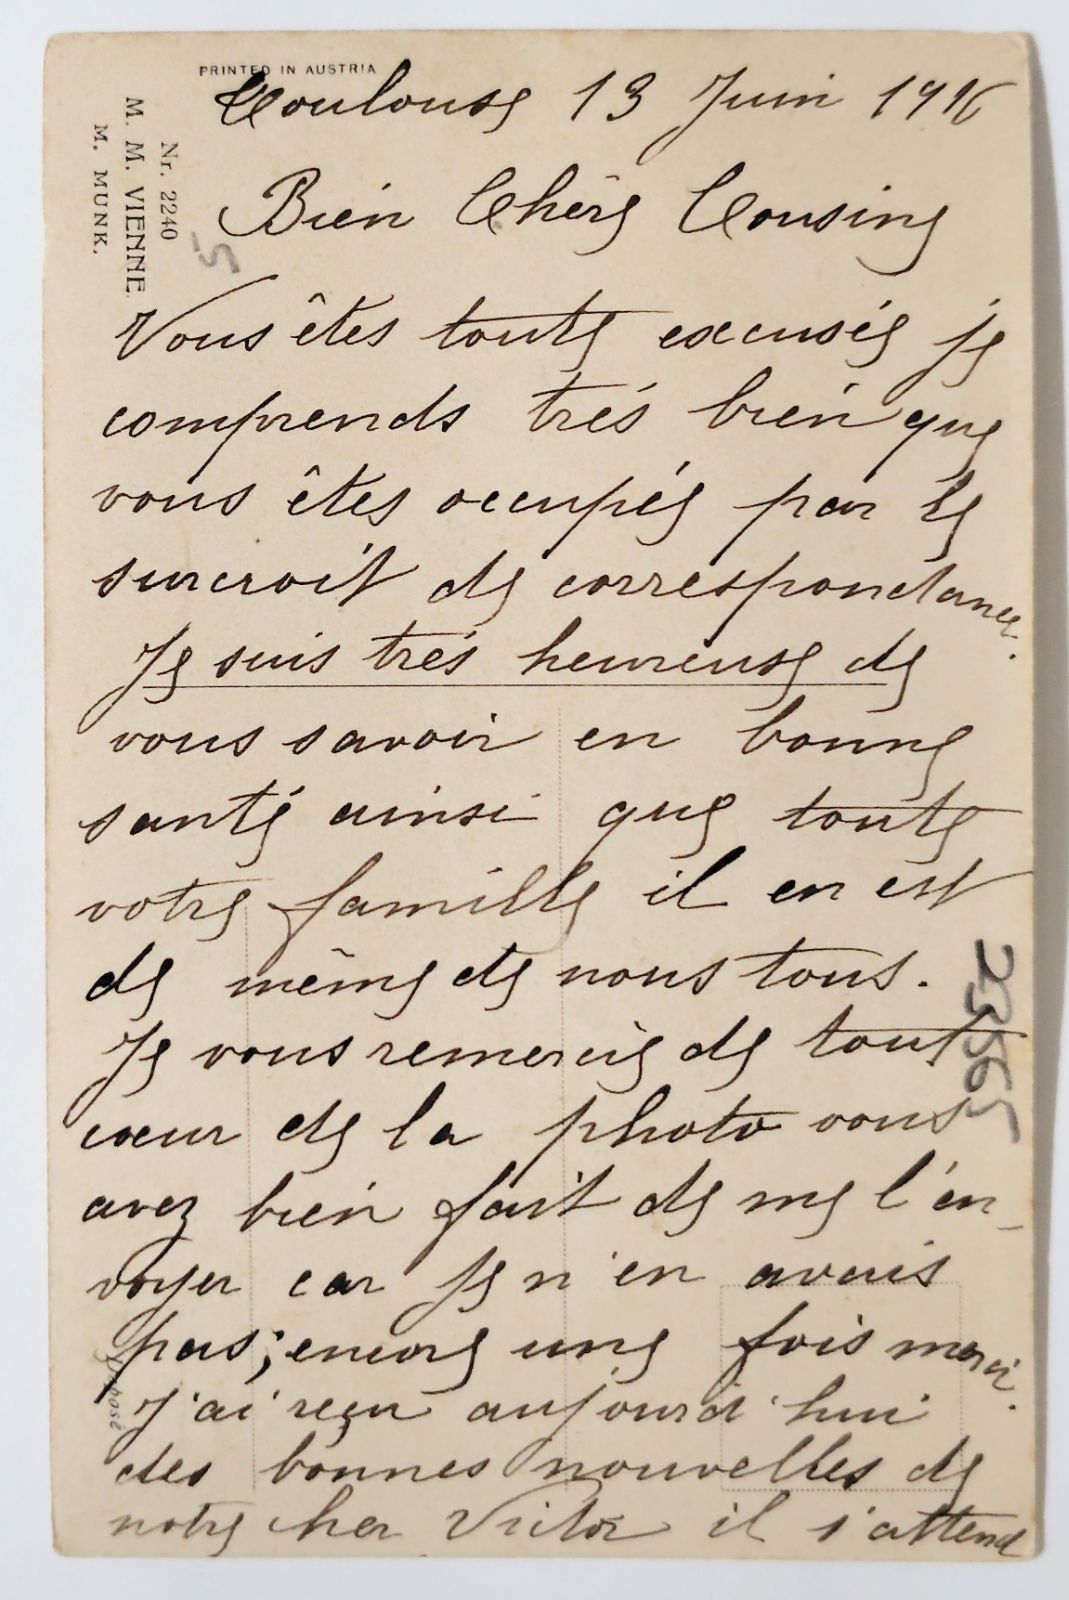 PRINTED IN AUSTRIA
Nr. 2240
M. M. VIENNE
M. MUNK.
Toulouse 13 Juin 1916
Bien Chère Cousine
Vous êtes toute excusée je
comprends trés bien que
vous êtes occupée par le
surcroit de correspondance.
Je suis très heureuse de
vous savoir en bonne
santé ainsi que toute
votre famille il en est
de même de nous tous.
Je vous remercie de tout
cœur de la photo vous
avez bien fait de me l'en-
voyer car je n'en avais
pas; encore une fois merci.
J'ai reçu aujourd'hui
des bonnes nouvelles de
notre cher Victor il s'attend
23565
Déposé